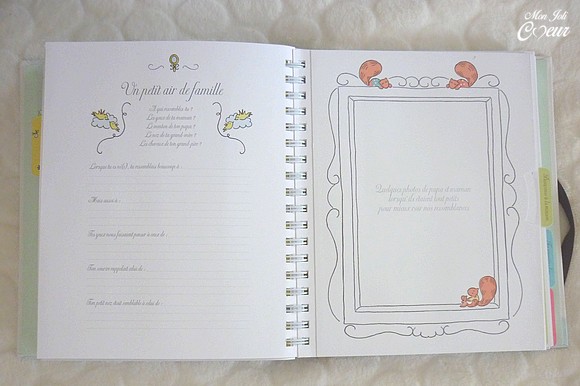 Mon Joli
Cœur
Un petit air de famille
A qui ressembles-tu ?
Les yeux de ta maman ?
Le menton de ton papa ?
Le nez de ta grand-mère ?
Les cheveux de ton grand-père ?
Lorsque tu es né(e), tu ressemblais beaucoup à :
Mais aussi à :
Tes yeux nous faisaient penser à ceux de :
Ton sourire rappelait celui de :
Ton petit nez était semblable à celui de :
Quelques photos de papa et maman
lorsqu'ils étaient tout petits
pour mieux voir nos ressemblances.